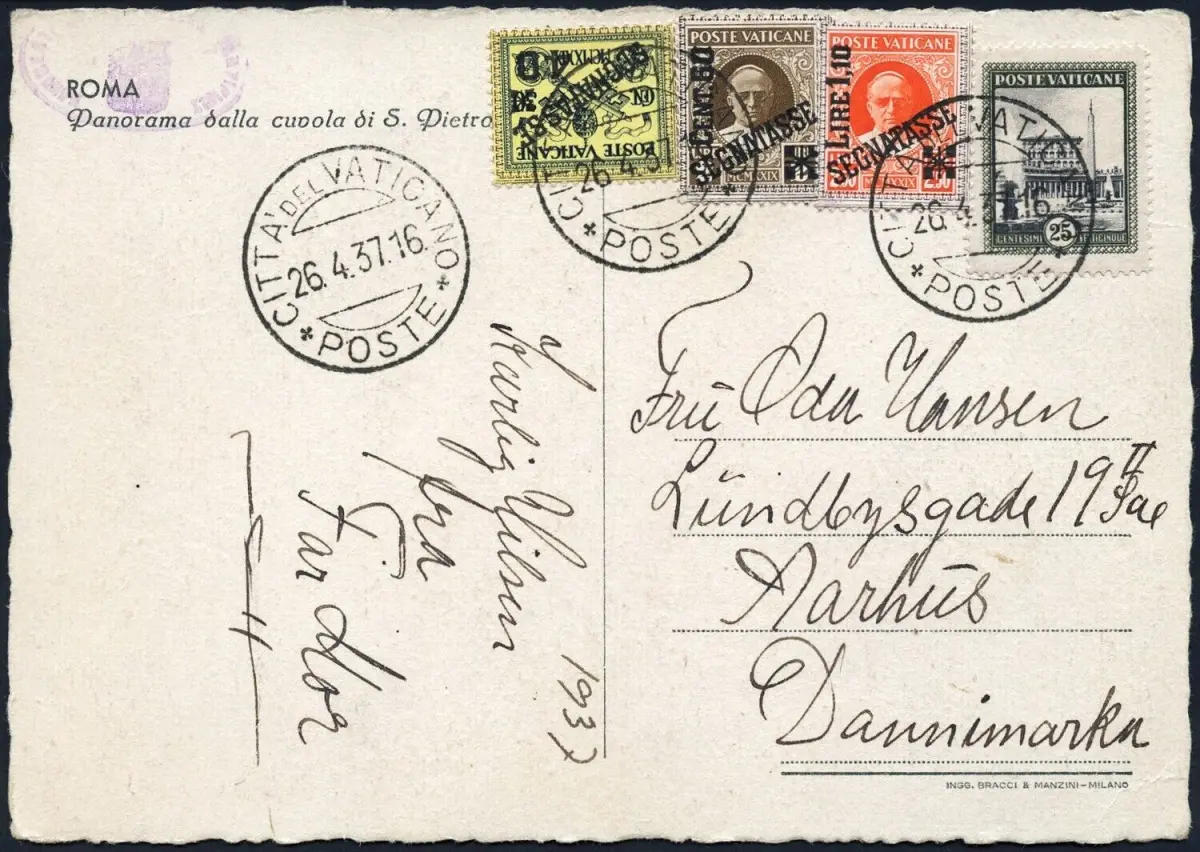 ROMA
Panorama dalla cupola di S. Pietro
CITTA' DEL VATICANO
26.4.37.16
* POSTE *
POSTE VATICANE
SEGNATASSE
26.4.37
* POSTE *
POSTE VATICANE
CENT. 60
SEGNATASSE
MCMXXIX
POSTE VATICANE
LIRE 1,10
SEGNATASSE
2.50 2.50
POSTE VATICANE
CENTESIMI 25 VENTICINQUE
CITTA' DEL VATICANO
26.4.37.16
* POSTE *
Kærlig Hilsen
fra
Far Mor
1937
Frü Oda Hansen
Lündbysgade 19 II
Aarhüs
Dannimarka
INGG. BRACCI & MANZINI-MILANO